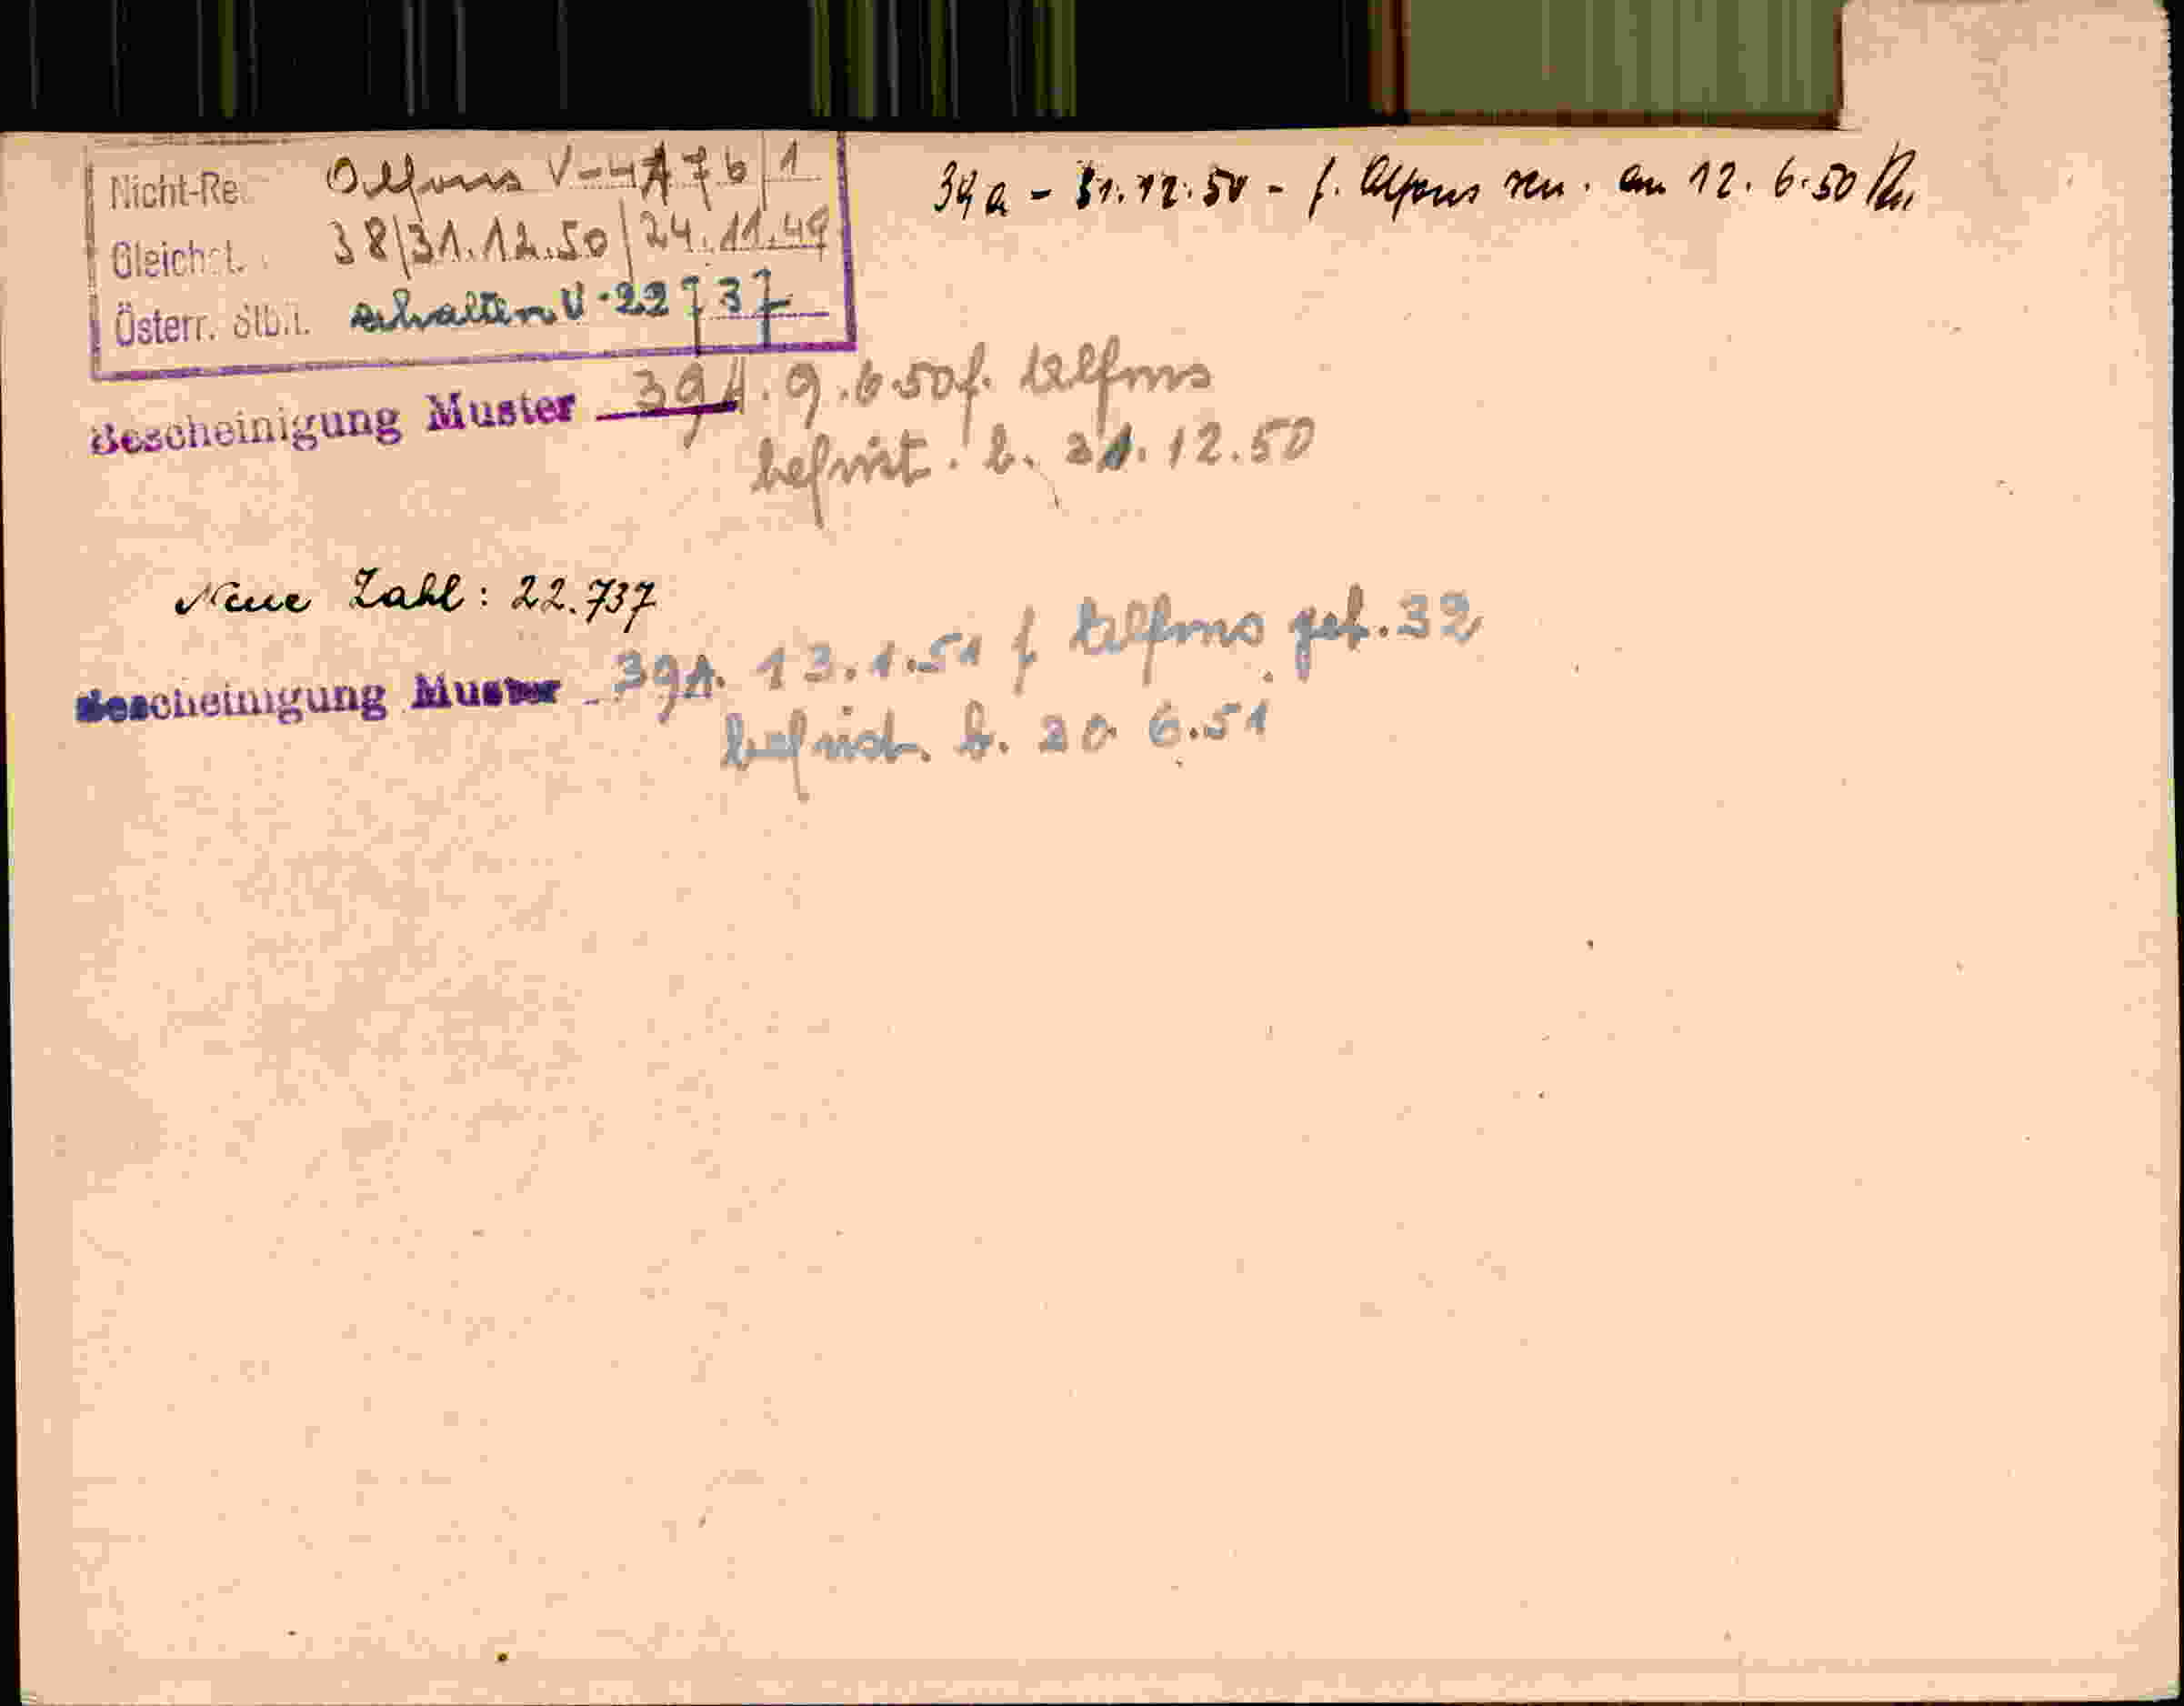 Nicht-Re. Alfons V-4776/1
Gleichst. : 38/31.12.50/24.11.49
Österr. Stb.l. erhalten V-22737
39a - 31.12.50 - f. Alfons am 12.6.50
Bescheinigung Muster 39A. 9.6.50 f. Alfons
befrist. b. 31.12.50
Neue Zahl: 22.737
Bescheinigung Muster 39A. 13.1.51 f Alfons geb. 32
befrist. b. 30 6.51